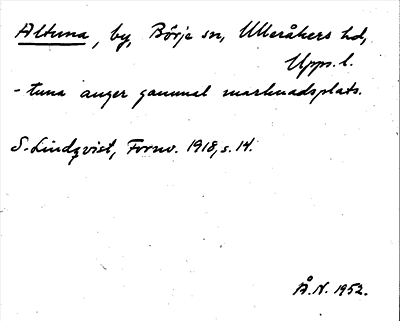 Altuna, by, Börje sn, Ulleråkers hd,
Upps. l.
- tuna anger gammal marknadsplats.
S. Lindqvist, Fornv. 1918, s. 14.
Å.N. 1952.